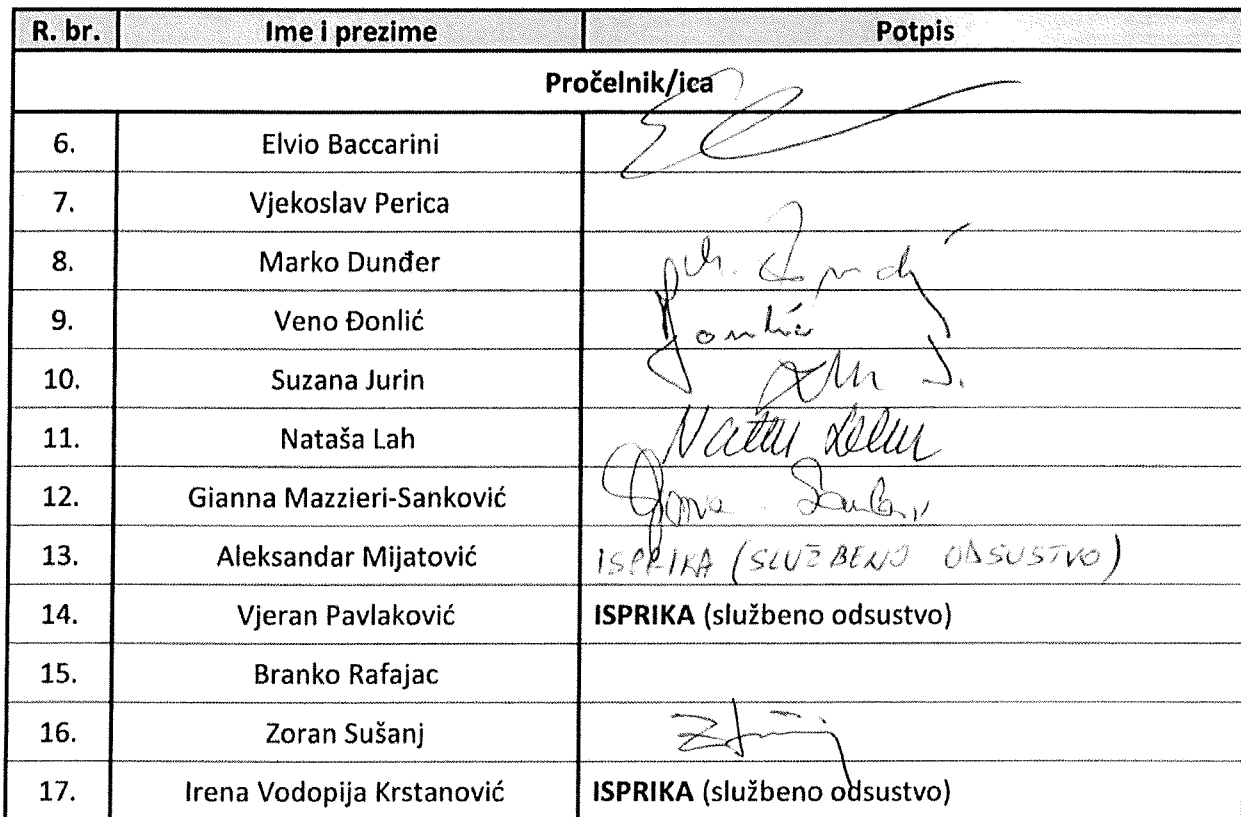 R. br. Ime i prezime Potpis
Pročelnik/ica
6. Elvio Baccarini
7. Vjekoslav Perica
8. Marko Dunđer
9. Veno Đonlić
10. Suzana Jurin
11. Nataša Lah
12. Gianna Mazzieri-Sanković
13. Aleksandar Mijatović ISPRIKA (SLUŽBENO ODSUSTVO)
14. Vjeran Pavlaković ISPRIKA (službeno odsustvo)
15. Branko Rafajac
16. Zoran Sušanj
17. Irena Vodopija Krstanović ISPRIKA (službeno odsustvo)